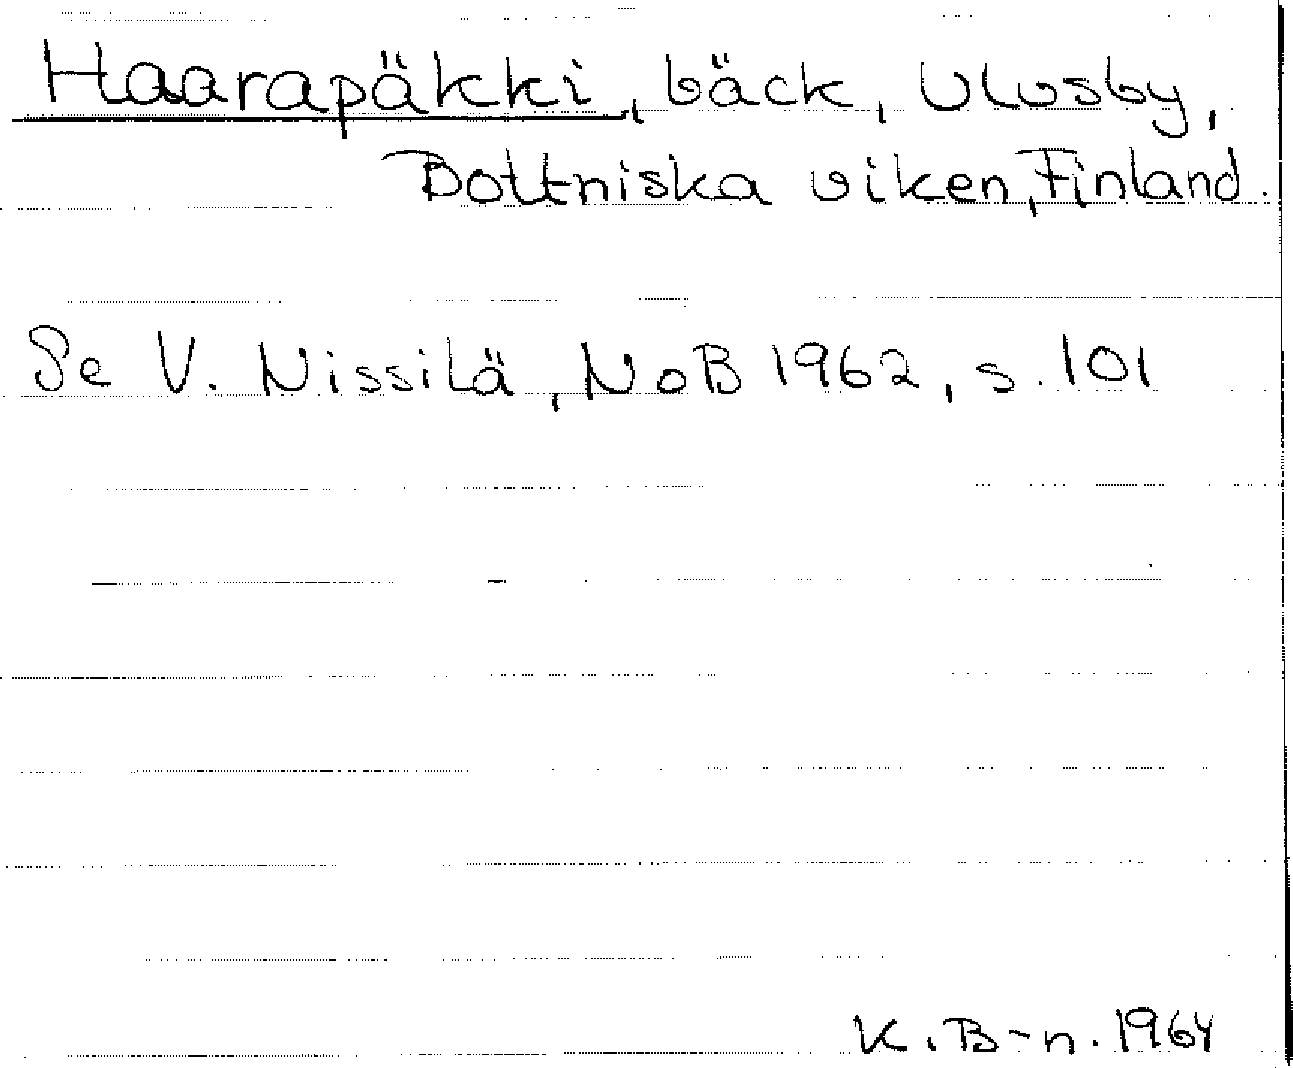 Haarapäkki, bäck, Ulvsby,
Bottniska viken, Finland.
Se V. Nissilä, NoB 1962, s. 101
K. B-n. 1964